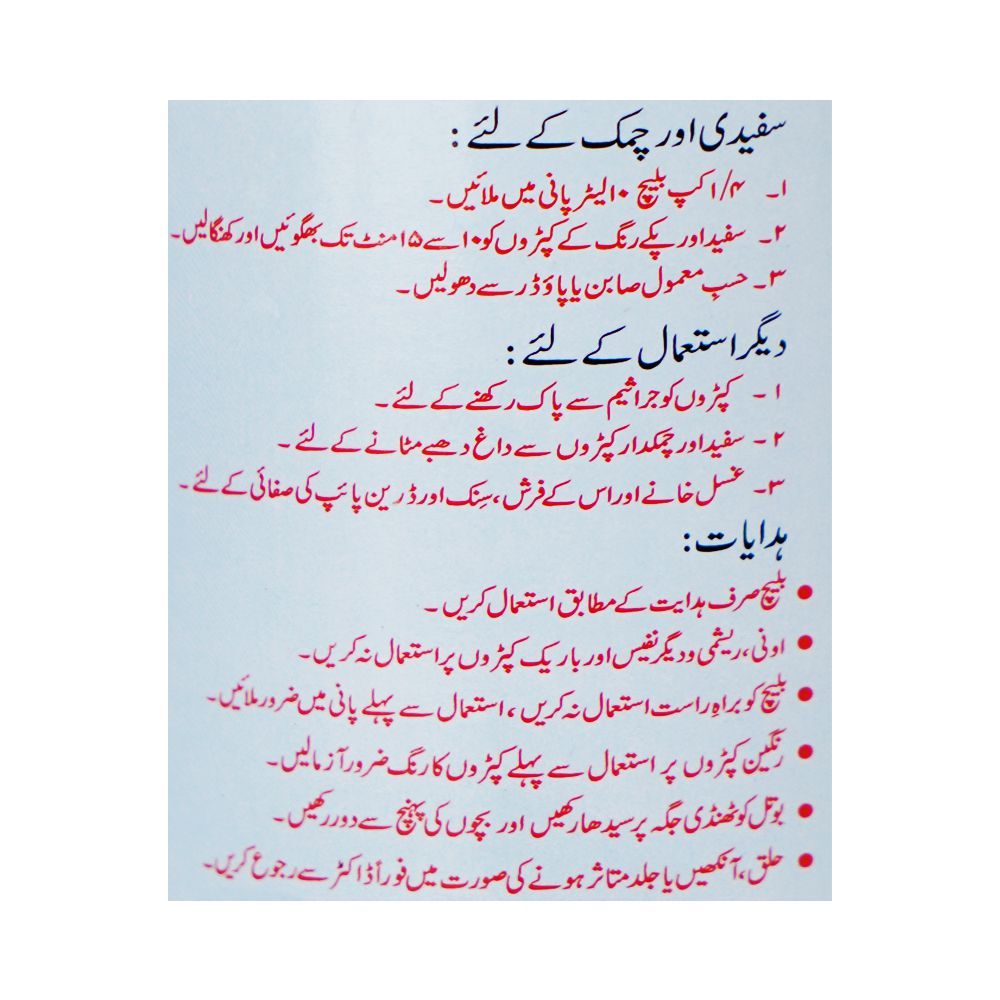 سفیدی اور چمک کے لئے :
۱۔ ۱/۴ کپ بلیچ ۱۰ لیٹر پانی میں ملائیں۔
۲۔ سفید اور پکے رنگ کے کپڑوں کو ۱۰ سے ۱۵ منٹ تک بھگوئیں اور کھنگالیں۔
۳۔ حسبِ معمول صابن یا پاؤڈر سے دھولیں۔
دیگر استعمال کے لئے :
۱۔ کپڑوں کو جراثیم سے پاک رکھنے کے لئے۔
۲۔ سفید اور چمکدار کپڑوں سے داغ دھبے مٹانے کے لئے۔
۳۔ غسل خانے اور اس کے فرش، سِنک اور ڈرین پائپ کی صفائی کے لئے۔
ہدایات:
• بلیچ صرف ہدایت کے مطابق استعمال کریں۔
• اونی، ریشمی و دیگر نفیس اور باریک کپڑوں پر استعمال نہ کریں۔
• بلیچ کو براہِ راست استعمال نہ کریں، استعمال سے پہلے پانی میں ضرور ملائیں۔
• رنگین کپڑوں پر استعمال سے پہلے کپڑوں کا رنگ ضرور آزمالیں۔
• بوتل کو ٹھنڈی جگہ پر سیدھا رکھیں اور بچوں کی پہنچ سے دور رکھیں۔
• حلق، آنکھیں یا جلد متاثر ہونے کی صورت میں فوراً ڈاکٹر سے رجوع کریں۔